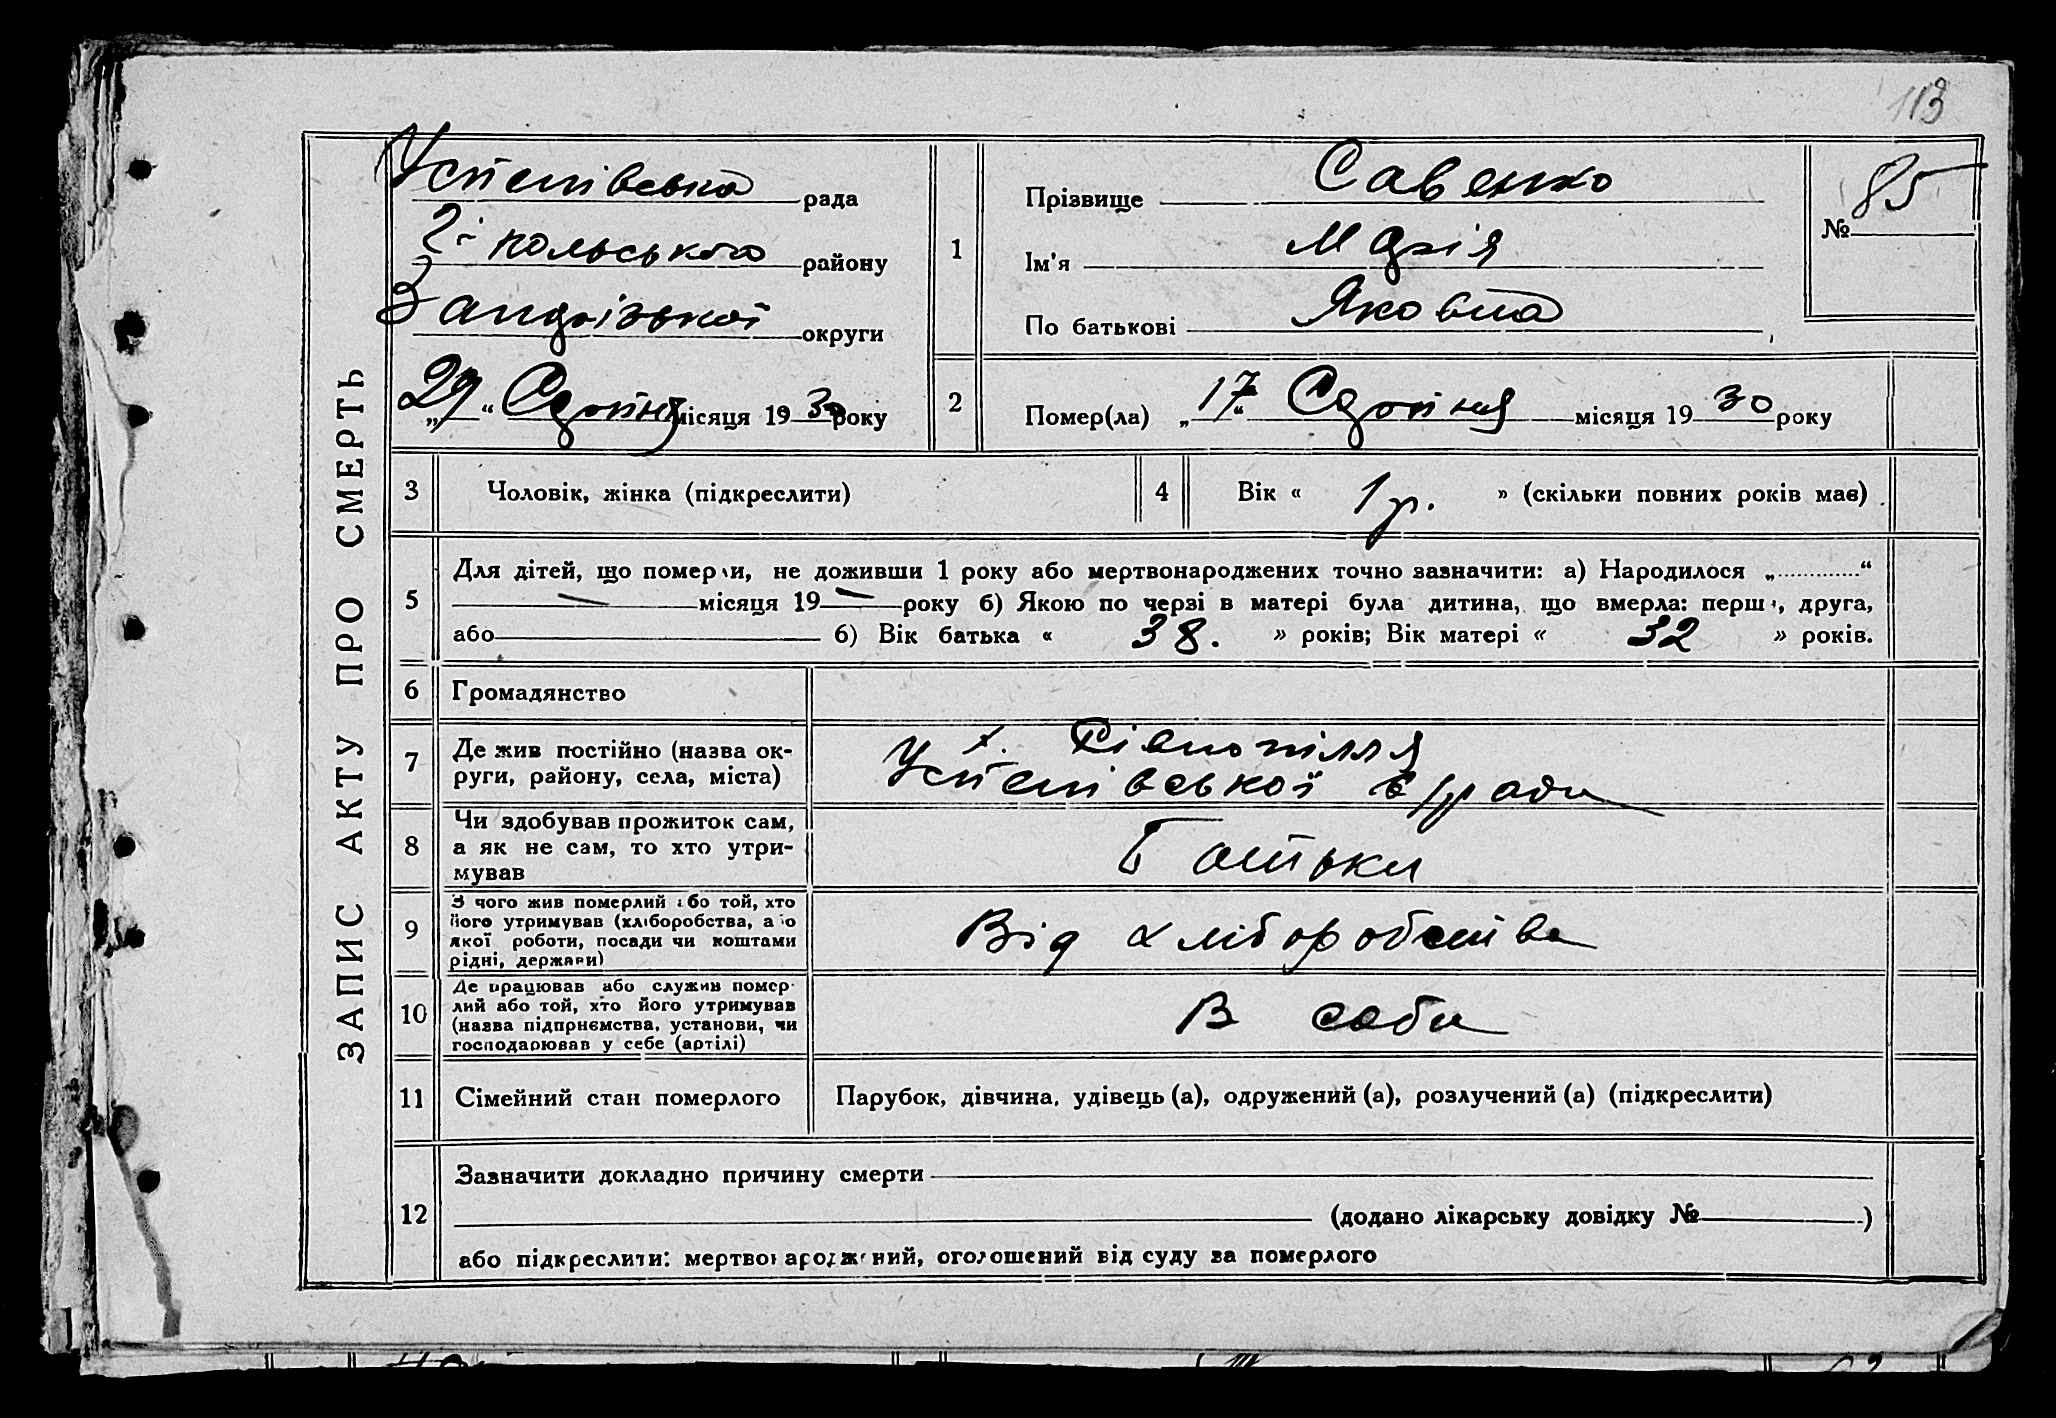 113
ЗАПИС АКТУ ПРО СМЕРТЬ
Успенівська рада
Г-Польського району
Запорізької округи
„29“ Серпня місяця 1930 року
1
Прізвище Савенко
Ім'я Марія
По батькові Яковна
№ 85
2
Помер(ла) „17“ Серпня місяця 1930 року
3 Чоловік, жінка (підкреслити)
4 Вік « 1 р. » (скільки повних років мав)
5
Для дітей, що померли, не доживши 1 року або мертвонароджених точно зазначити: а) Народилося „............“
— місяця 19 — року б) Якою по черзі в матері була дитина, що вмерла: перша, друга,
або б) Вік батька « 38. » років; Вік матері « 32 » років.
6 Громадянство
7 Де жив постійно (назва округи, району, села, міста)
х. Рівнопілля
Успенівської с/ради
8 Чи здобував прожиток сам,
а як не сам, то хто утримував
Батьки
9 З чого жив померлий або той, хто
його утримував (хліборобства, або
якої роботи, посади чи коштами
рідні, держави)
Від хліборобства
10 Де працював або служив померлий або той, хто його утримував
(назва підприємства, установи, чи
господарював у себе (артілі)
В себе
11 Сімейний стан померлого
Парубок, дівчина, удівець (а), одружений (а), розлучений (а) (підкреслити)
12
Зазначити докладно причину смерти
(додано лікарську довідку № )
або підкреслити: мертвонароджений, оголошений від суду за померлого